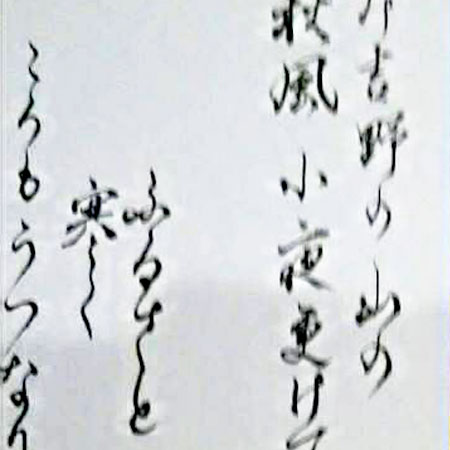 吉野の山の
秋風小夜更けて
ふるさと
寒く
ころもうつなり